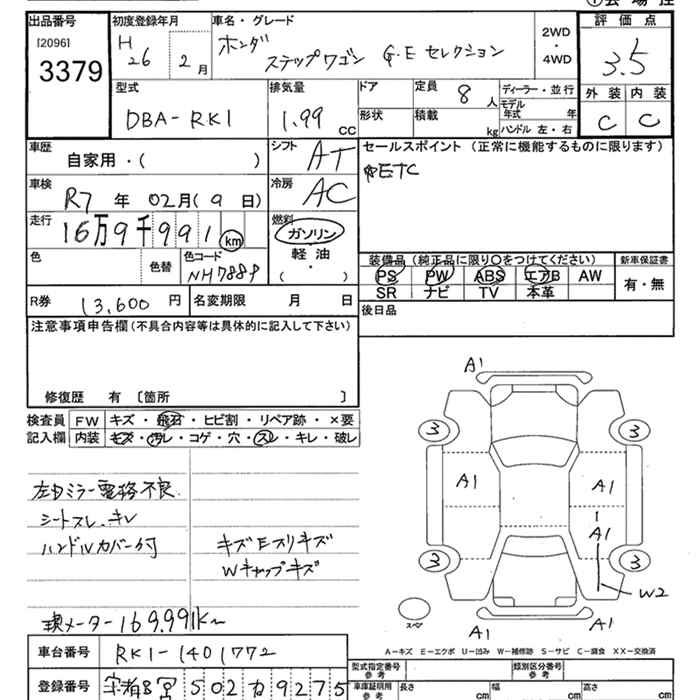 出品番号 初度登録年月 車名・グレード 2WD・4WD 評価点
[2096]
3379
H26 2月
ホンダ ステップワゴン G・E セレクション
3.5
型式 排気量 ドア 定員 8人 ディーラー・並行 外装 内装
DBA-RK1 1.99cc 形状 積載 kg モデル年式 年 ハンドル 左・右 C C
車歴 自家用・( ) シフト AT セールスポイント (正常に機能するものに限ります)
ETC
車検 R7年 02月(9日) 冷房 AC
走行 16万9千991km 燃料 ガソリン 軽油 ( ・ )
色 色替 色コード NH788P
装備品 (純正品に限り○をつけてください) 新車保証書
PS PW ABS エアB AW 有・無
SR ナビ TV 本革
R券 13,600円 名変期限 月 日 後日品
注意事項申告欄 (不具合内容等は具体的に記入して下さい)
修復歴 有 [箇所 ]
検査員 FW キズ・飛石・ヒビ割・リペア跡・×要
記入欄 内装 キズ・汚レ・コゲ・穴・スレ・キレ・破レ
左ドミラー電格不良
シートスレ、キレ
ハンドルカバー付 キズEスリキズ
Wキャップキズ
現メーター169,991K
A1
3 3
A1 A1
A1
3 3
W2
スペア
A1 A1
A-キズ E-エクボ U-凹み W-補修跡 S-サビ C-腐食 XX-交換済
車台番号 RK1-1401772 型式指定番号 参考 類別区分番号 参考
登録番号 502 9275 車庫証明用 参考 長さ cm 幅 cm 高さ cm